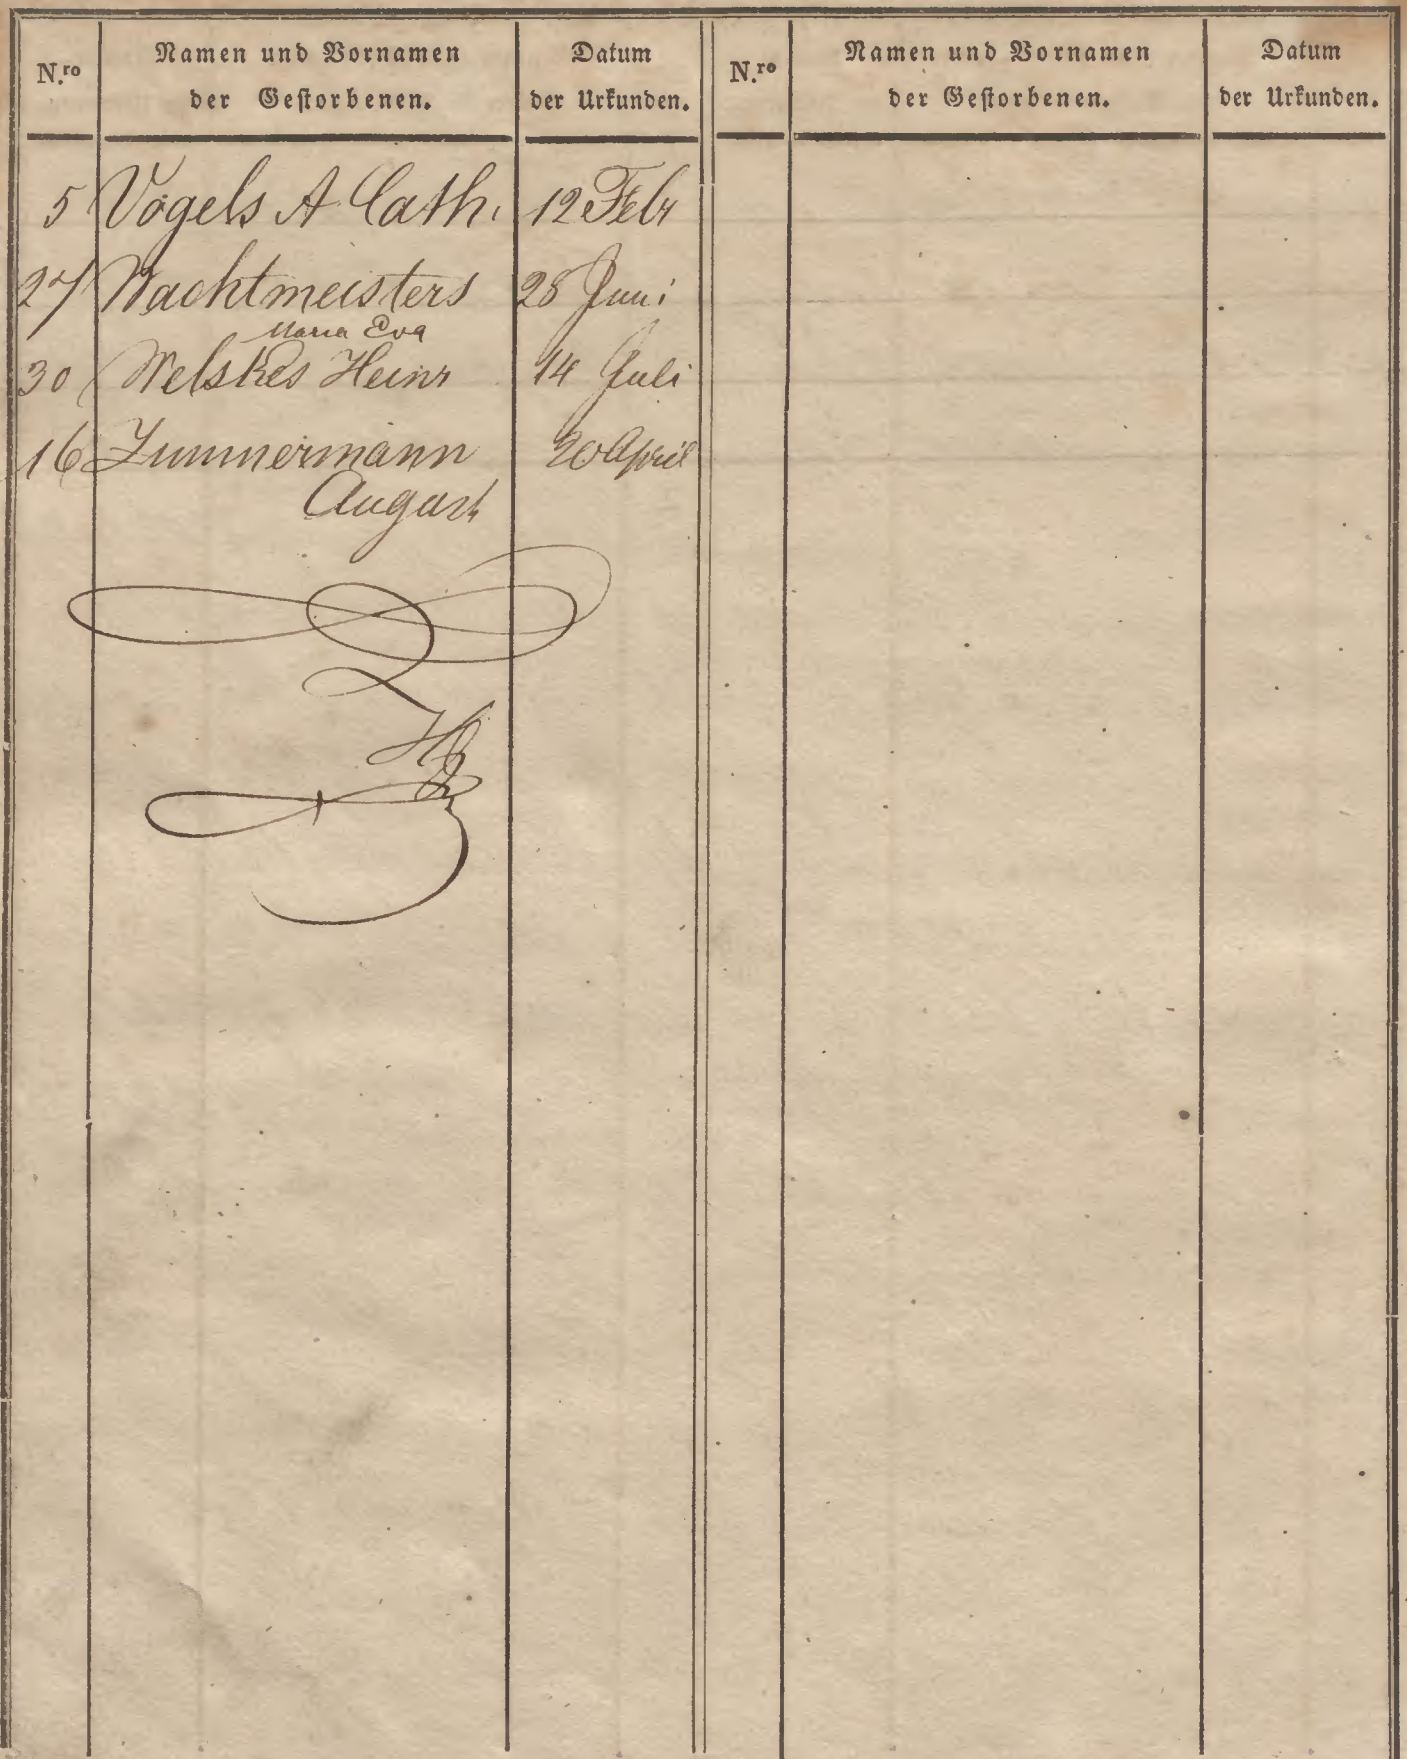 N.ro Namen und Vornamen der Gestorbenen. Datum der Urkunden. N.ro Namen und Vornamen der Gestorbenen. Datum der Urkunden.
5 Vögels A Cath. 12 Febr
27 Wachtmeisters 28 Juni
Maria Eva
30 Welskes Heinr 14 Juli
16 Zimmermann 20 April
August